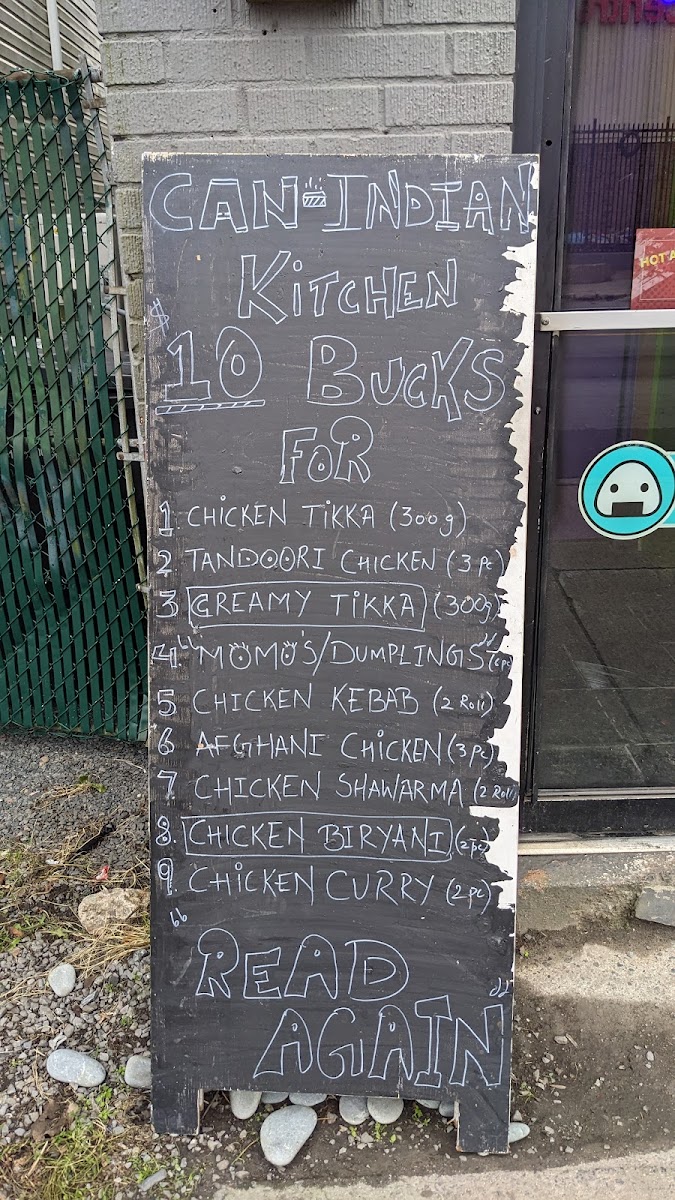 CAN-INDIAN
KITCHEN
$
10 BUCKS
FOR
1. CHICKEN TIKKA (300g)
2 TANDOORI CHICKEN (3 PC)
3 CREAMY TIKKA (300g)
4. "MOMO'S/DUMPLINGS" (6 pc)
5 CHICKEN KEBAB (2 Roll)
6 AFGHANI CHICKEN (3 pc)
7 CHICKEN SHAWARMA (2 Roll)
8. CHICKEN BIRYANI (2 pc)
9. CHICKEN CURRY (2 pc)
"READ
AGAIN"
HOT